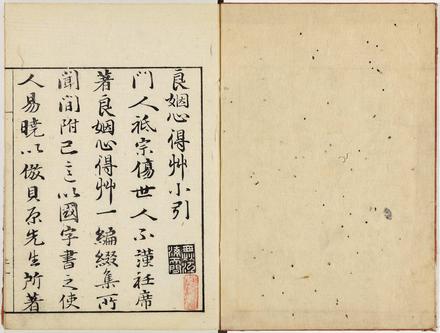 良姻心得艸小引
門人祗宗傷世人不謹衽席
著良姻心得艸一編綴集所
聞間附己意以國字書之使
人易曉以倣貝原先生所著